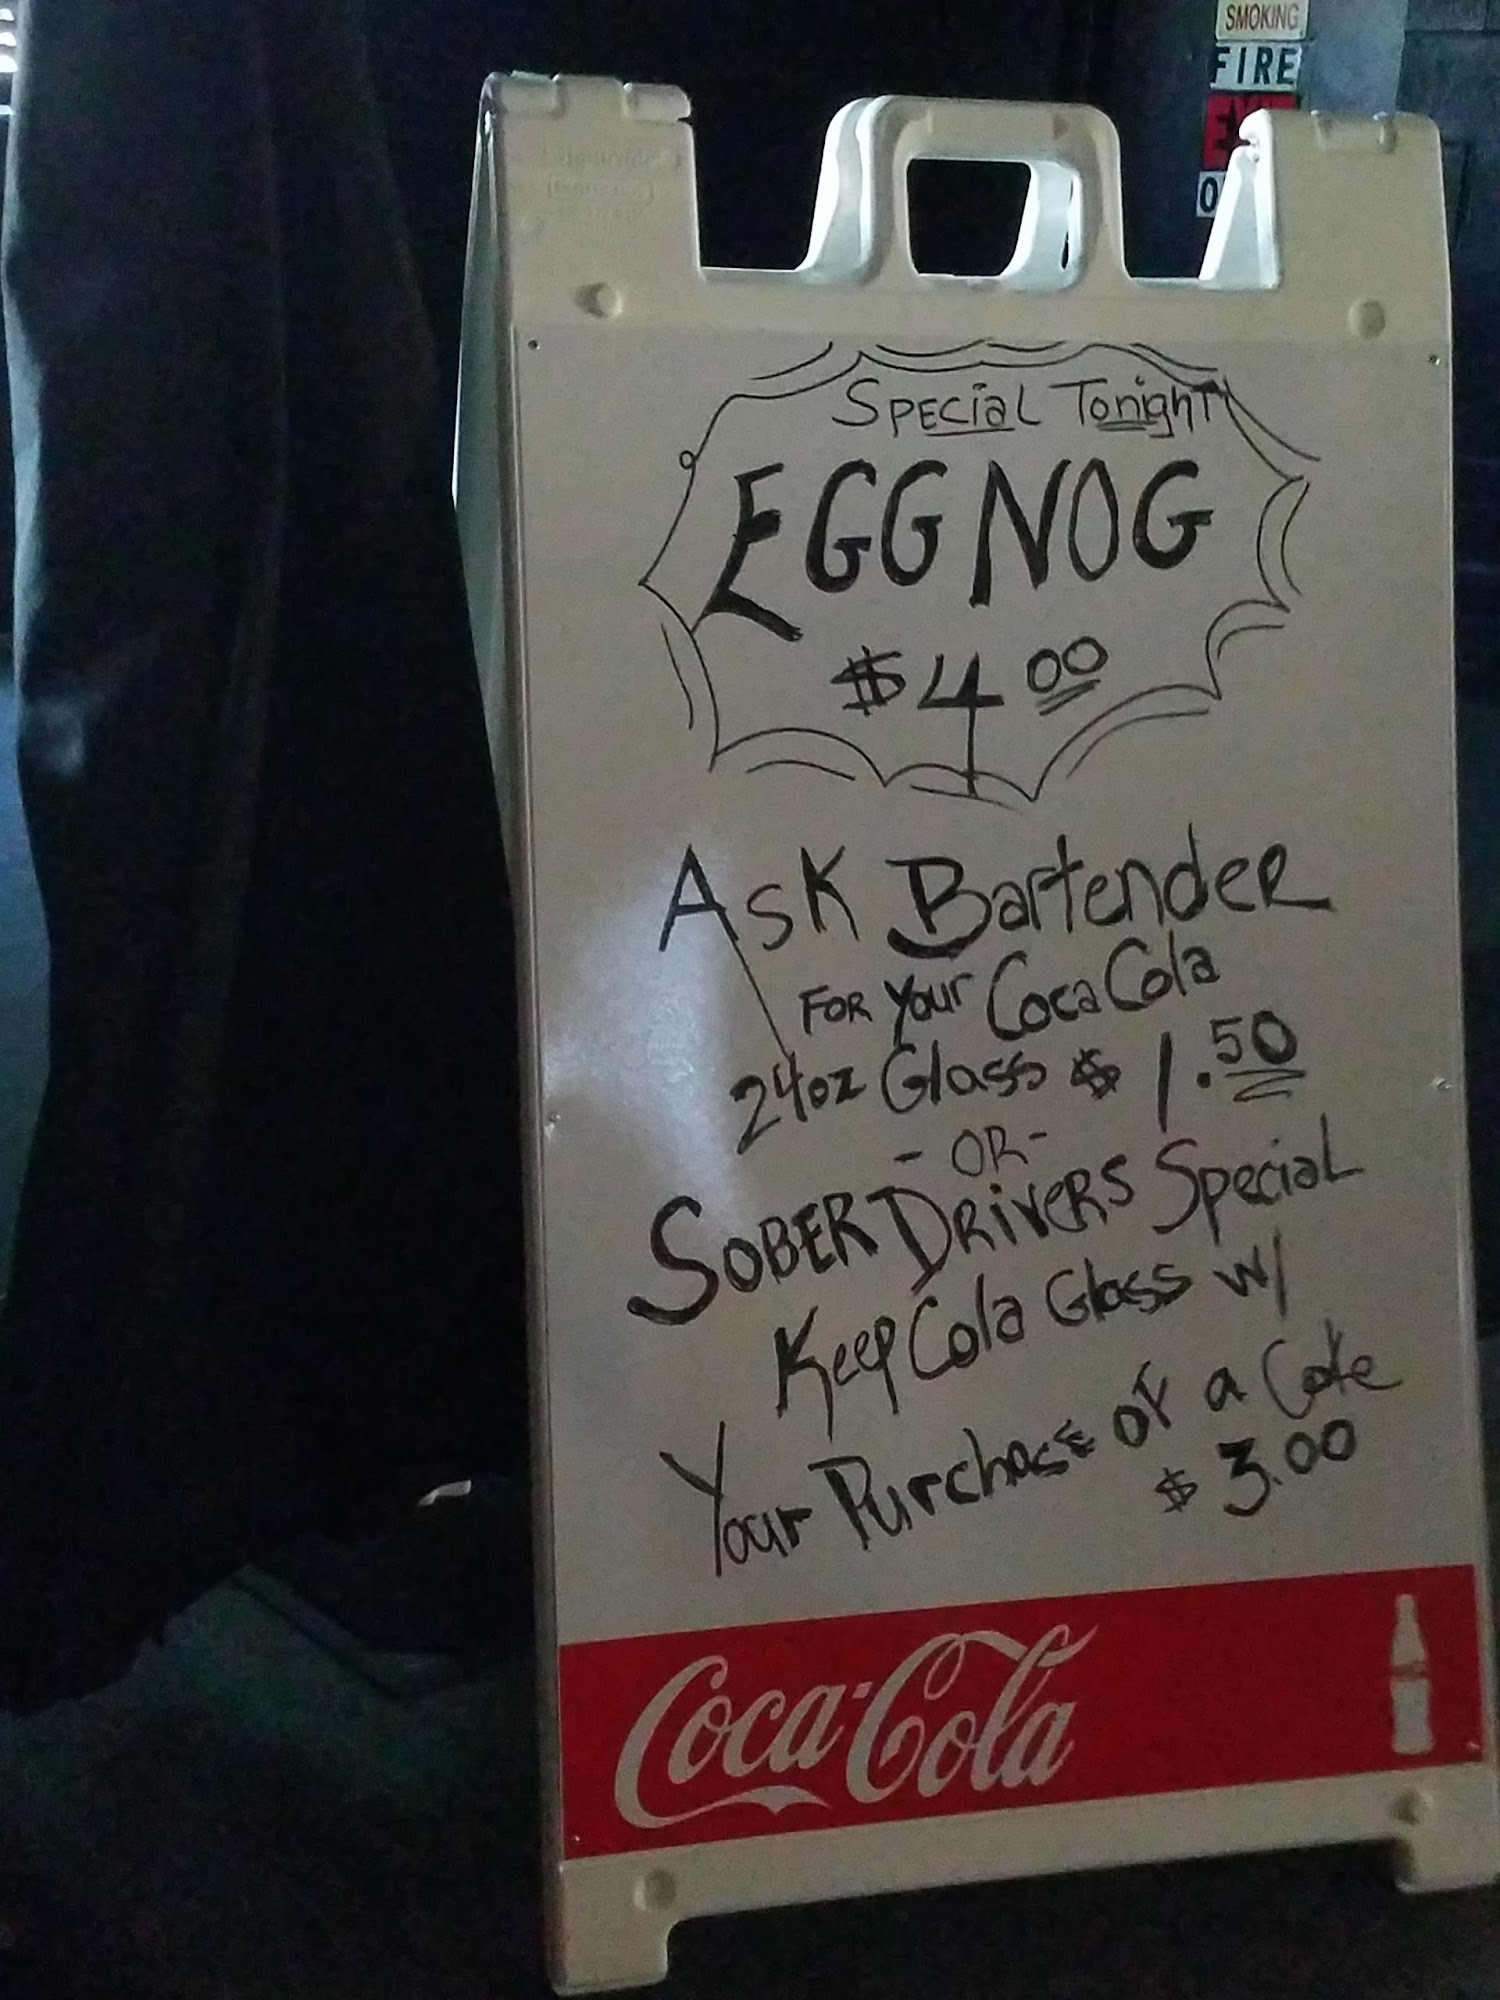 SMOKING
FIRE
Special Tonight
EGG NOG
$4.00
Ask Bartender
For Your Coca Cola
24oz Glass $1.50
- OR -
Sober Drivers Special
Keep Cola Glass w/
Your Purchase of a Coke
$3.00
Coca-Cola